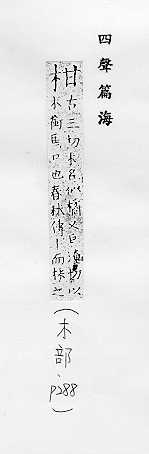 四聲篇海
柑 古三切木名似橘又巨淹切以
木銜馬口也春秋傳丨而秣之
(木部、p288)